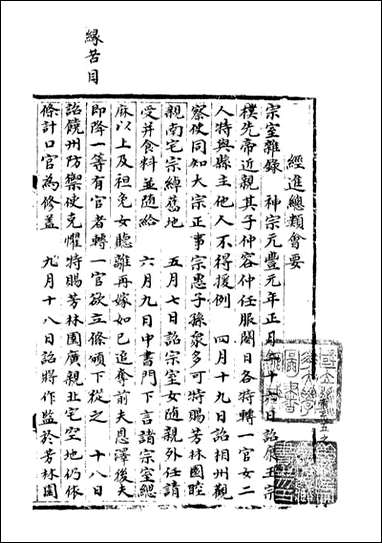 緣苦目
經進總類會要
宗室雜錄 神宗元豐元年正月 十六日詔 王宗
樸先帝近親其子仲容仲任服闋日各特轉一官女二
人特與縣主他人不得援例 四月十九日詔相州觀
察使同知大宗正事宗惠子孫衆多可特賜芳林園睦
親南宅宗綽舊地 五月七日詔宗室女隨親外任請
受并食料並隨給 六月九日中書門下言諸宗室緦
麻以上及袒免女聽離再嫁如已追奪前夫恩澤後夫
即降一等有官者轉一官欲立條頒下從之 十八日
詔饒州防禦使克懼特賜芳林園廣親北宅空地仍依
條計口官為修蓋 九月十八日詔將作監於芳林園